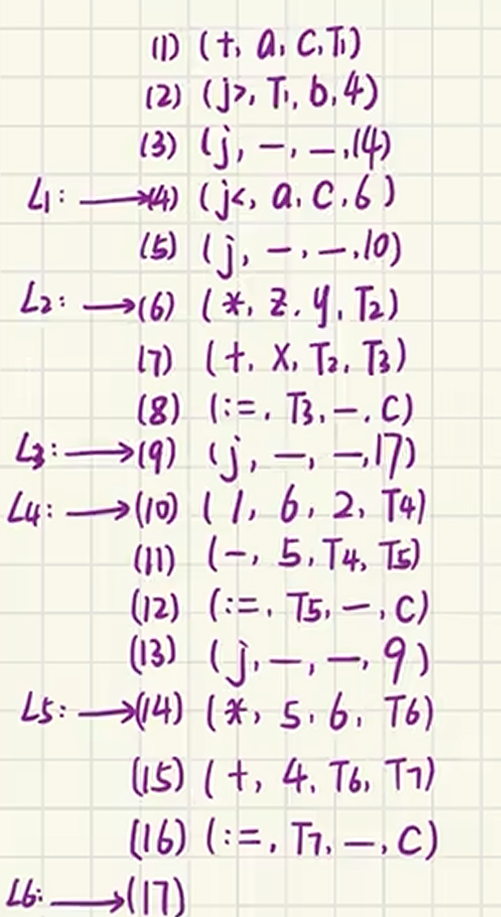 (1) (+, a, C, T1)
(2) (j>, T1, b, 4)
(3) (j, -, -, 14)
L1: →(4) (j<, a, C, 6)
(5) (j, -, -, 10)
L2: →(6) (*, z, y, T2)
(7) (+, X, T2, T3)
(8) (:=, T3, -, C)
L3: →(9) (j, -, -, 17)
L4: →(10) (/, 6, 2, T4)
(11) (-, 5, T4, T5)
(12) (:=, T5, -, C)
(13) (j, -, -, 9)
L5: →(14) (*, 5, 6, T6)
(15) (+, 4, T6, T7)
(16) (:=, T7, -, C)
L6: →(17)